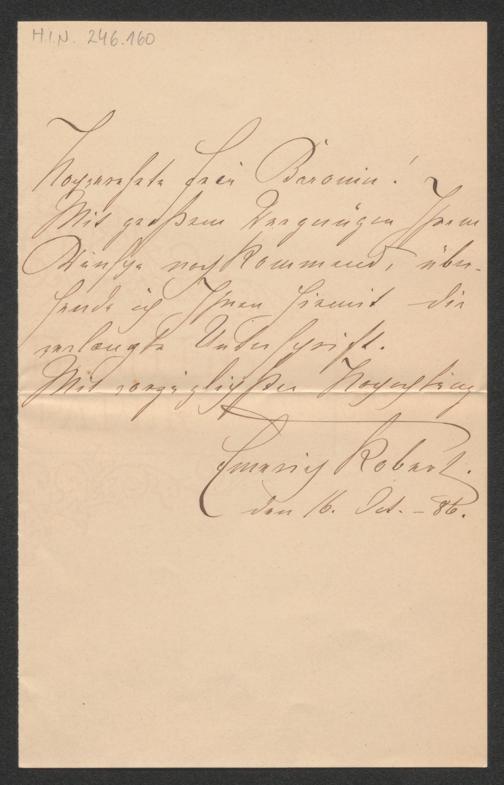 H.I.N. 246.160
Hochverehrte Frau Baronin!
Mit großem Vergnügen Ihrem
Wunsche nachkommend, über-
sende ich Ihnen hiemit die
verlangte Unterschrift.
Mit vorzüglichster Hochachtung
Emerich Robert.
den 16. Oct. – 86.